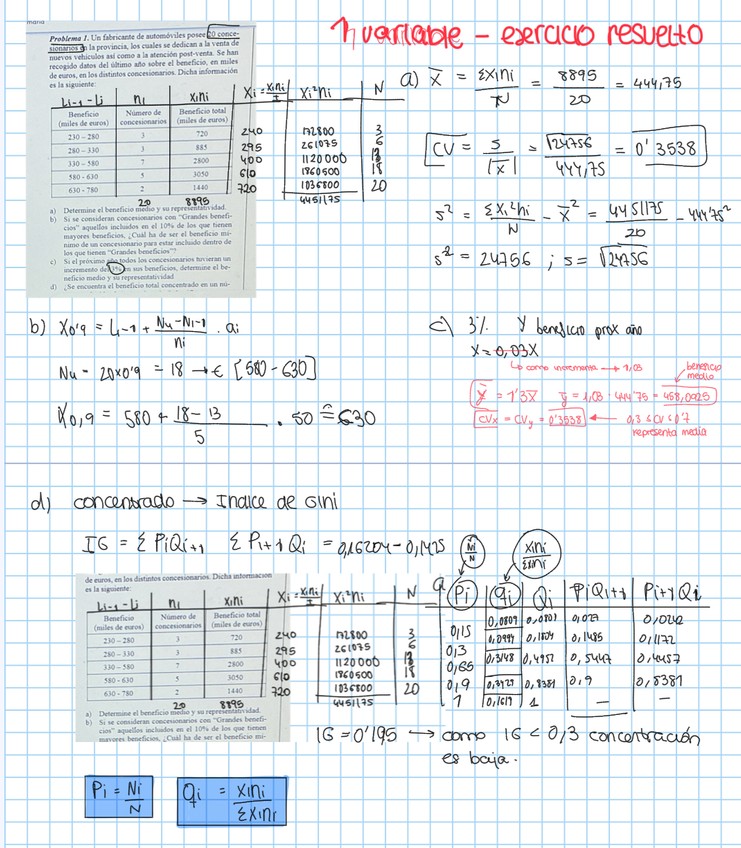 1 variable – ejercicio resuelto
maria
Problema 1. Un fabricante de automóviles posee 20 conce-
sionarios en la provincia, los cuales se dedican a la venta de
nuevos vehículos así como a la atención post-venta. Se han
recogido datos del último año sobre el beneficio, en miles
de euros, en los distintos concesionarios. Dicha información
es la siguiente:
Li-1 - Li | ni | xini | Xi = xini/I | Xi²ni | N
Beneficio (miles de euros) | Número de concesionarios | Beneficio total (miles de euros)
230 - 280 | 3 | 720 | 240 | 172800 | 3
280 - 330 | 3 | 885 | 295 | 261075 | 6
330 - 580 | 7 | 2800 | 400 | 1120000 | 13
580 - 630 | 5 | 3050 | 610 | 1860500 | 18
630 - 780 | 2 | 1440 | 720 | 1036800 | 20
20 8895 4451175
a) Determine el beneficio medio y su representatividad.
b) Si se consideran concesionarios con "Grandes benefi-
cios" aquellos incluidos en el 10% de los que tienen
mayores beneficios, ¿Cuál ha de ser el beneficio mí-
nimo de un concesionario para estar incluido dentro de
los que tienen "Grandes beneficios"?
c) Si el próximo año todos los concesionarios tuvieran un
incremento del 3% en sus beneficios, determine el be-
neficio medio y su representatividad
d) ¿Se encuentra el beneficio total concentrado en un nú-
a) x̄ = Σxini / N = 8895 / 20 = 444,75
CV = s / |x̄| = √24756 / 444,75 = 0'3538
s² = Σxi²ni / N - x̄² = 4451175 / 20 - 444'75²
s² = 24756 ; s = √24756
b) X0'9 = Li-1 + Nu-Ni-1 / ni . ai
Nu - 20x0'9 = 18 → € [580-630]
X0,9 = 580 + 18-13 / 5 . 50 = 630
c) 3% Y beneficio prox año
X = 0,03X
↳ como incrementa → 1,03
beneficio medio
ȳ = 1'3x̄ ȳ = 1,03 · 444'75 = 458,0925
CVx = CVy = 0'3538 ← 0,3 ≤ CV ≤ 0'7
representa media
d) concentrado → Indice de Gini
IG = Σ PiQi+1 Σ Pi+1Qi = 0,16204 - 0,1425
Ni/N xini/Σxini
de euros, en los distintos concesionarios. Dicha información
es la siguiente:
Li-1 - Li | ni | xini | Xi = xini/I | Xi²ni | N | Pi | qi | Qi | PiQi+1 | Pi+1Qi
Beneficio (miles de euros) | Número de concesionarios | Beneficio total (miles de euros)
230 - 280 | 3 | 720 | 240 | 172800 | 3 | 0,15 | 0,0809 | 0,0809 | 0,027 | 0,0242
280 - 330 | 3 | 885 | 295 | 261075 | 6 | 0,3 | 0,0994 | 0,1804 | 0,1485 | 0,1172
330 - 580 | 7 | 2800 | 400 | 1120000 | 13 | 0,65 | 0,3148 | 0,4952 | 0,5447 | 0,4457
580 - 630 | 5 | 3050 | 610 | 1860500 | 18 | 0,9 | 0,3429 | 0,8381 | 0,9 | 0,8381
630 - 780 | 2 | 1440 | 720 | 1036800 | 20 | 1 | 0,1619 | 1 | – | –
20 8895 4451175
a) Determine el beneficio medio y su representatividad.
b) Si se consideran concesionarios con "Grandes benefi-
cios" aquellos incluidos en el 10% de los que tienen
mayores beneficios, ¿Cuál ha de ser el beneficio mí-
IG = 0'195 → como IG < 0,3 concentración
es baja.
Pi = Ni / N
qi = xini / Σxini